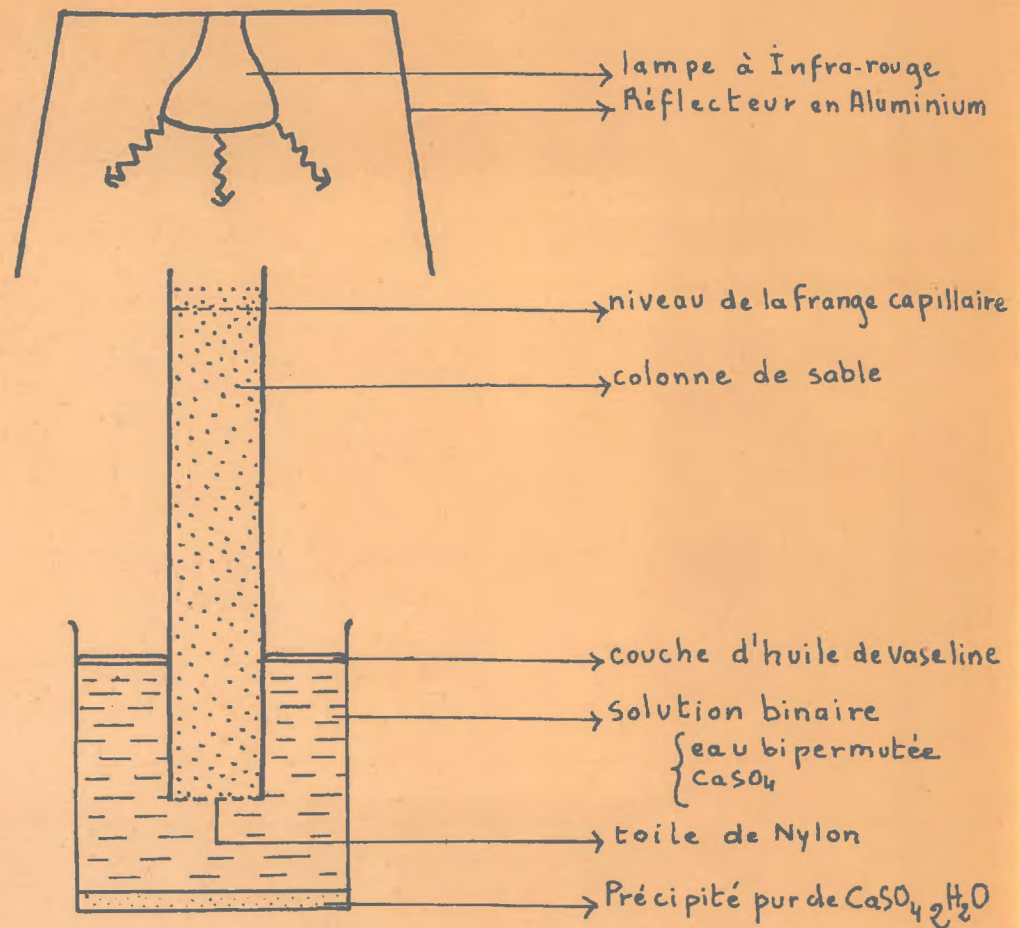 lampe à Infra-rouge
Réflecteur en Aluminium
niveau de la frange capillaire
colonne de sable
couche d'huile de vaseline
solution binaire
eau bipermutée
CaSO4
toile de Nylon
Précipité pur de CaSO4 2H2O